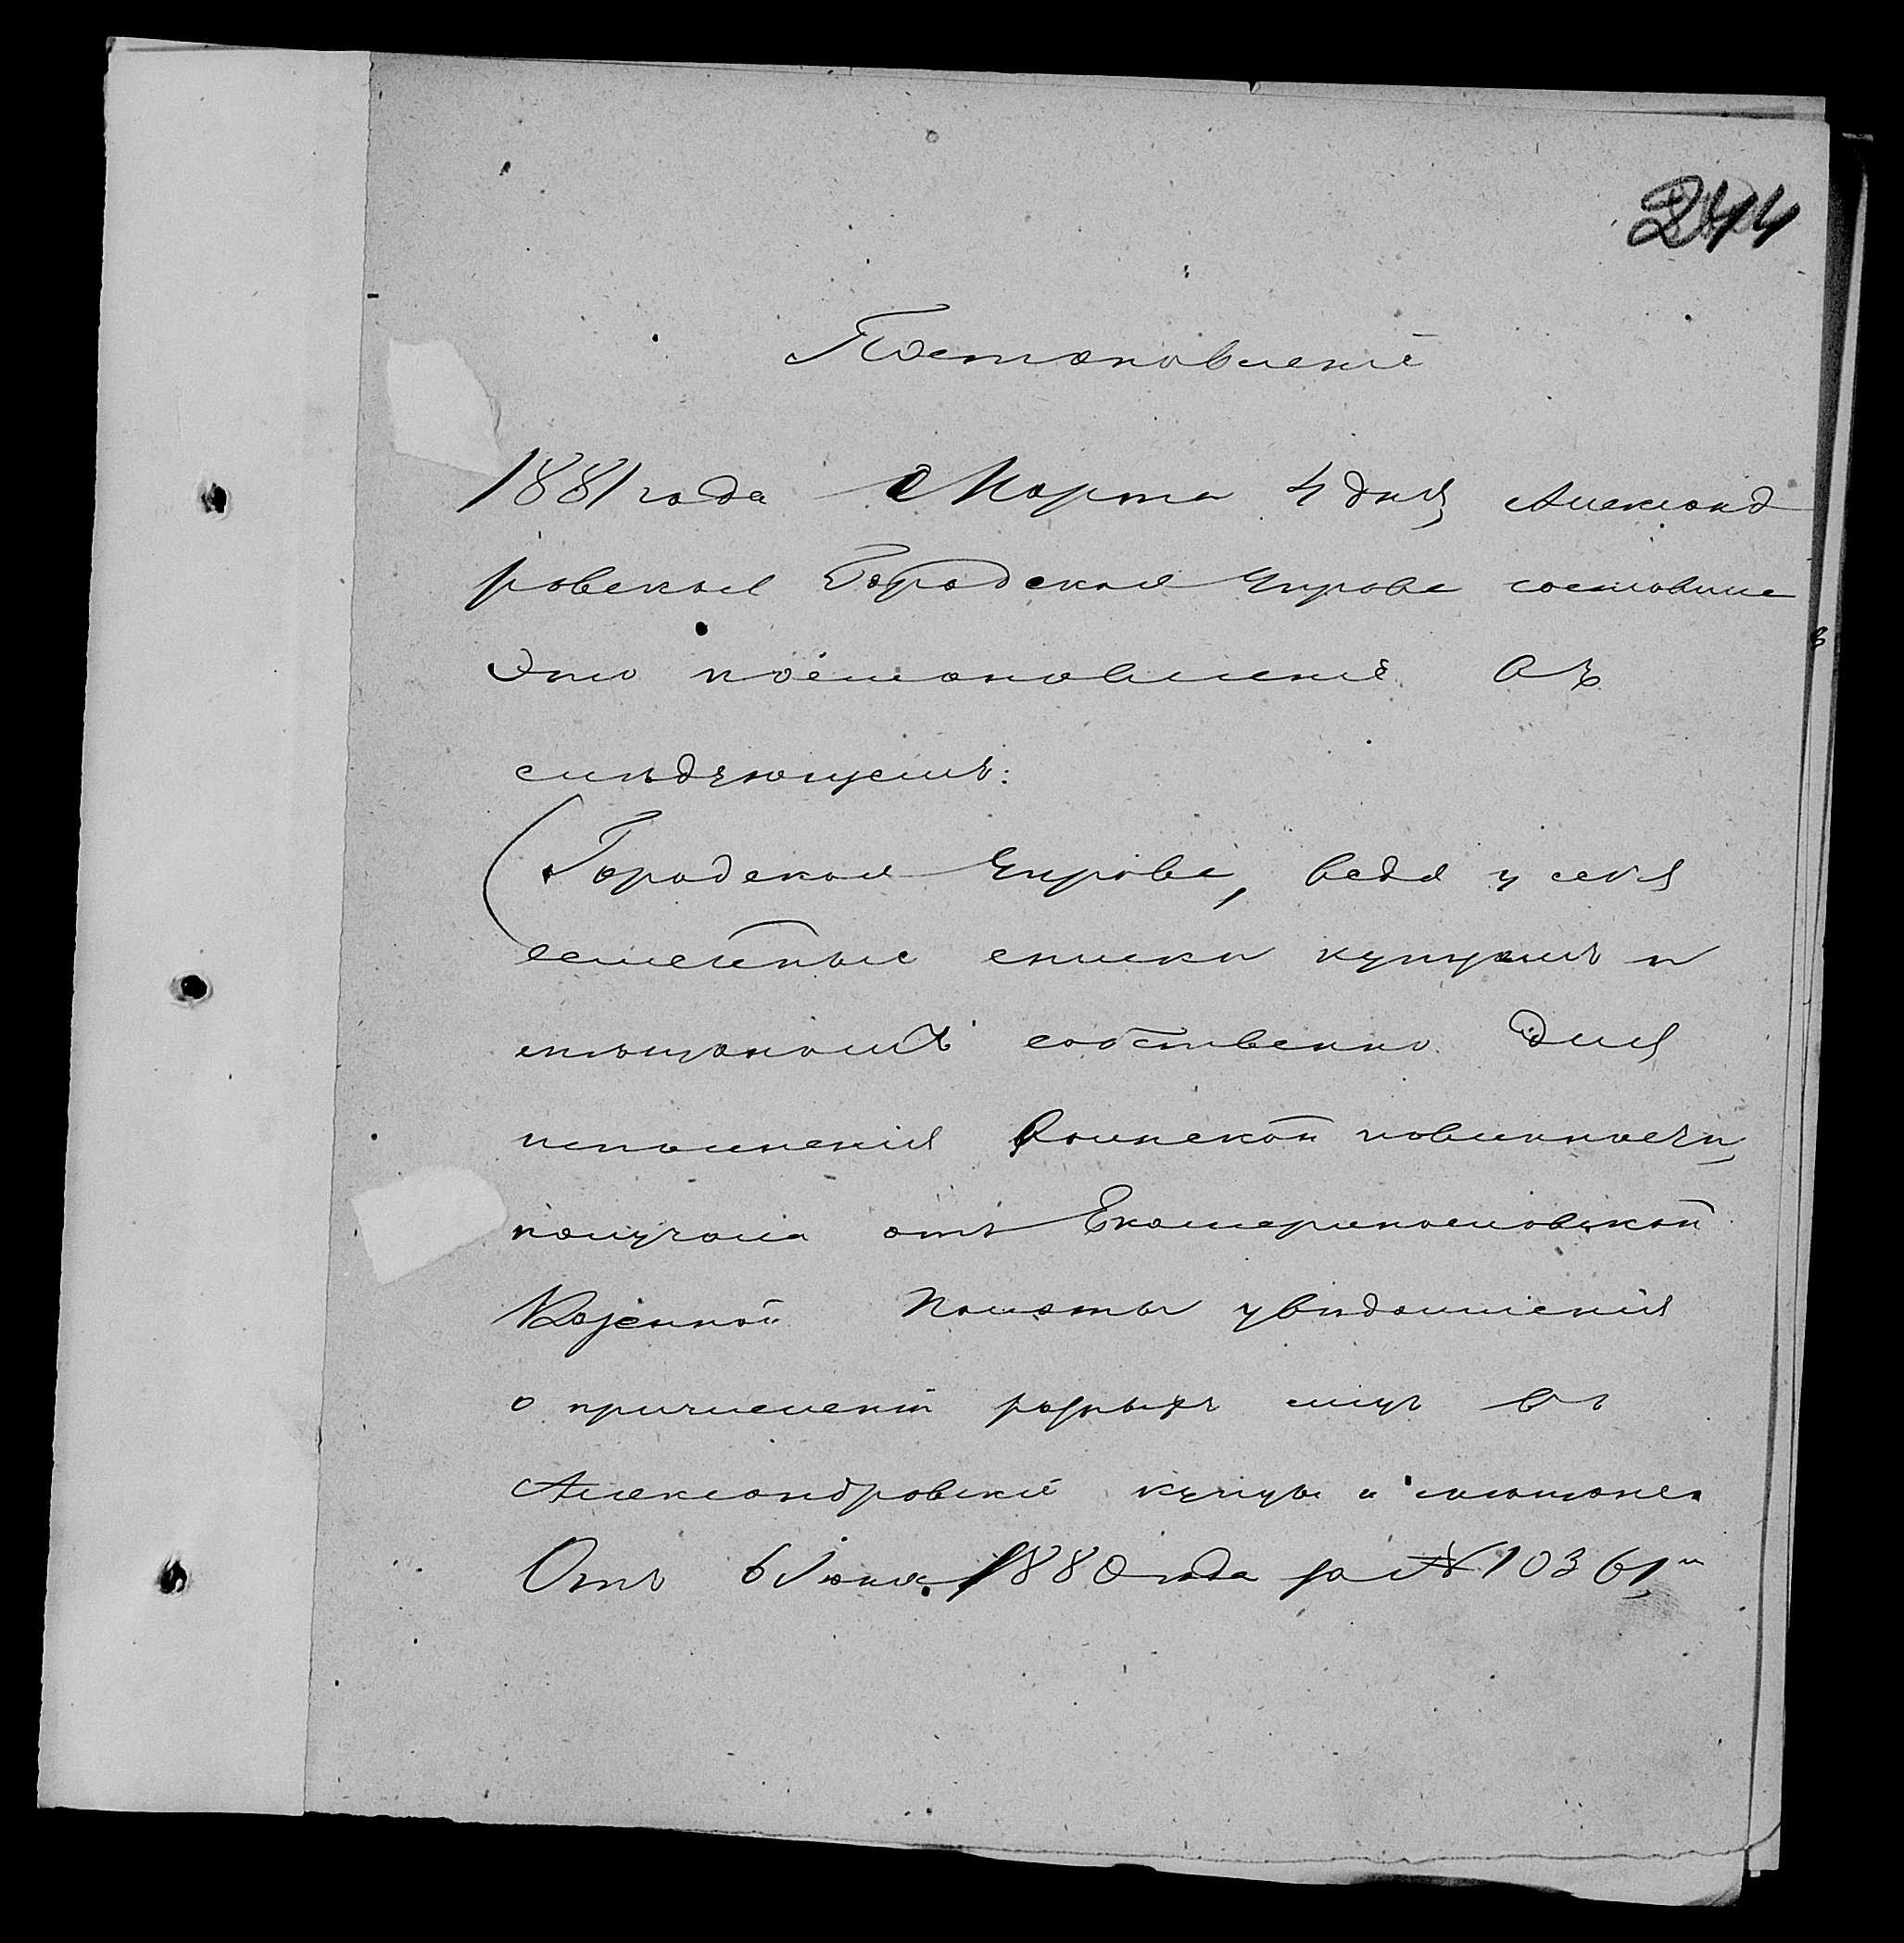 244
Постановленіе
1881 года Марта 4 дня Александ
ровская Городская Управа составила
это постановленіе въ
слѣдующемъ:
Городская Управа, ведя у себя
семейные списки купцамъ и
мѣщанамъ собственно для
исполненія Воинской повинности,
получала отъ Екатеринославской
Казенной Палаты увѣдомленія
о причисленіи разныхъ лицъ въ
Александровскіе купцы и мѣщане.
Отъ 6 Іюня 1880 года за № 10361,